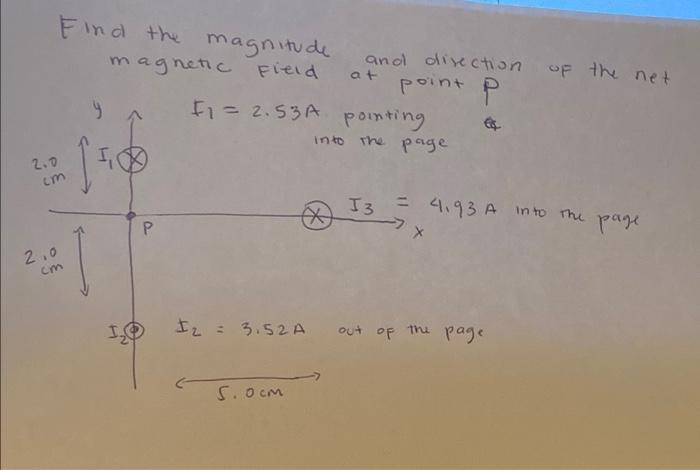 Find the magnitude and direction of the net
magnetic field at point P
I1 = 2.53A pointing
into the page
y
2.0
cm
I1
I3 = 4.93 A into the page
x
P
2.0
cm
I2
I2 = 3.52A out of the page
5.0cm